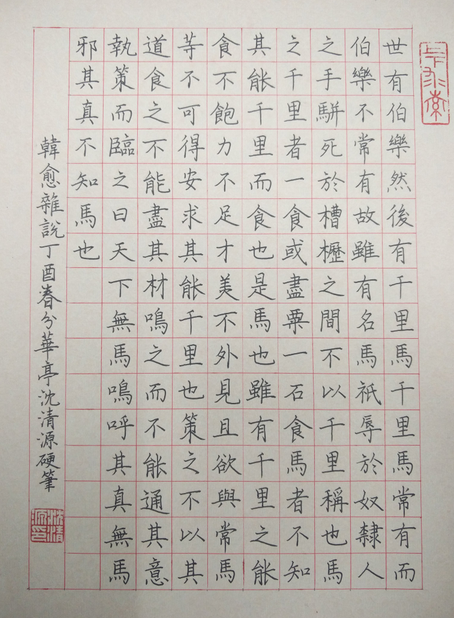 世有伯樂然後有千里馬千里馬常有而
伯樂不常有故雖有名馬祇辱於奴隸人
之手駢死於槽櫪之間不以千里稱也馬
之千里者一食或盡粟一石食馬者不知
其能千里而食也是馬也雖有千里之能
食不飽力不足才美不外見且欲與常馬
等不可得安求其能千里也策之不以其
道食之不能盡其材鳴之而不能通其意
執策而臨之曰天下無馬嗚呼其真無馬
邪其真不知馬也
韓愈雜說丁酉春分華亭沈清源硬筆